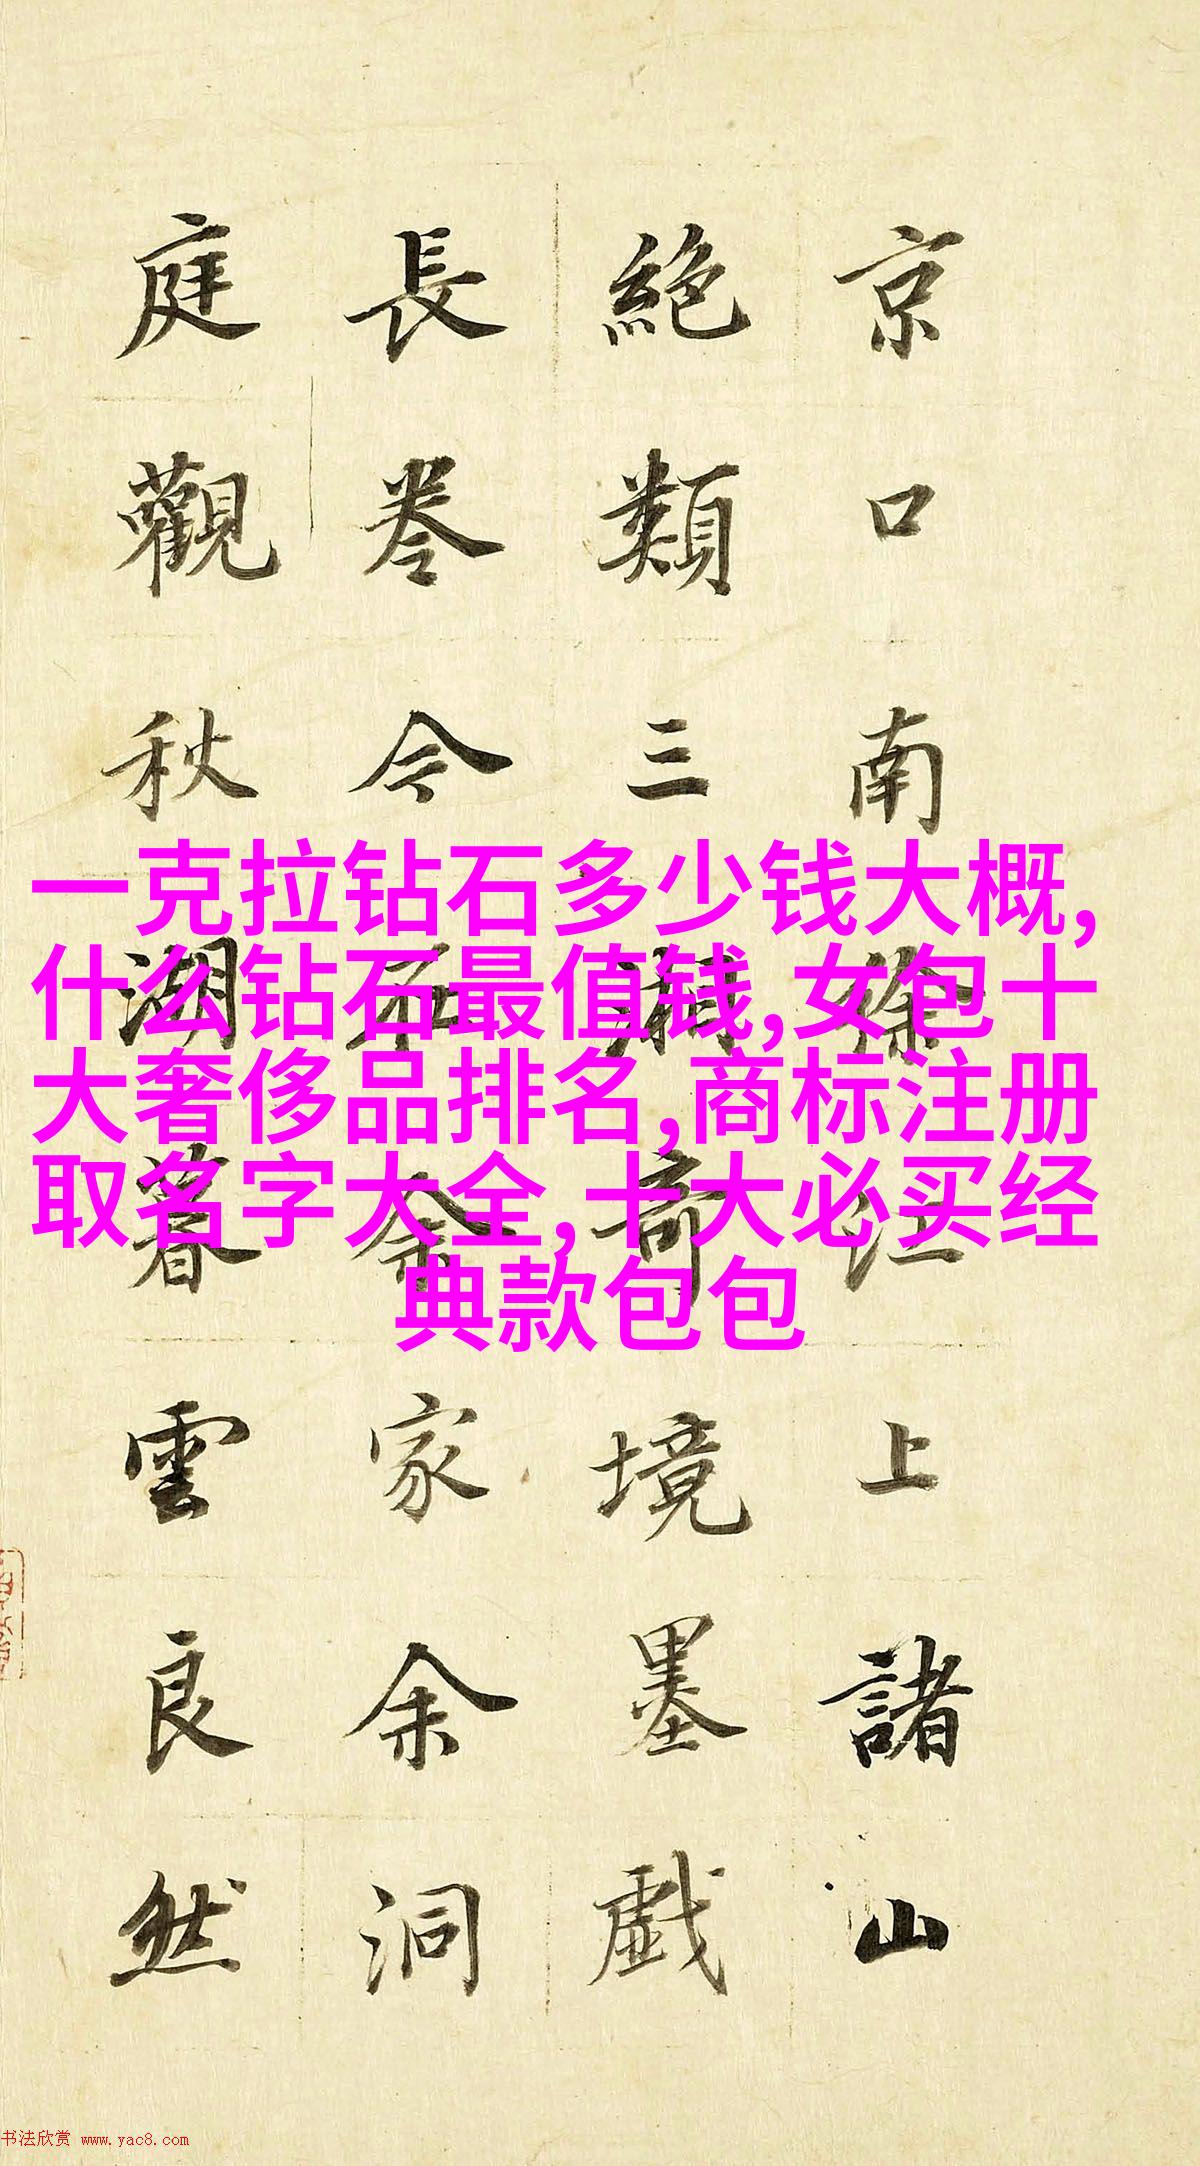 京口南徐江上諸山
絶類三湘奇境墨戲
長卷今在余家余洞
庭觀秋湖暮雲良然
一克拉钻石多少钱大概,
什么钻石最值钱,女包十
大奢侈品排名,商标注册
取名字大全,十大必买经
典款包包
书法欣赏 www.yac8.com